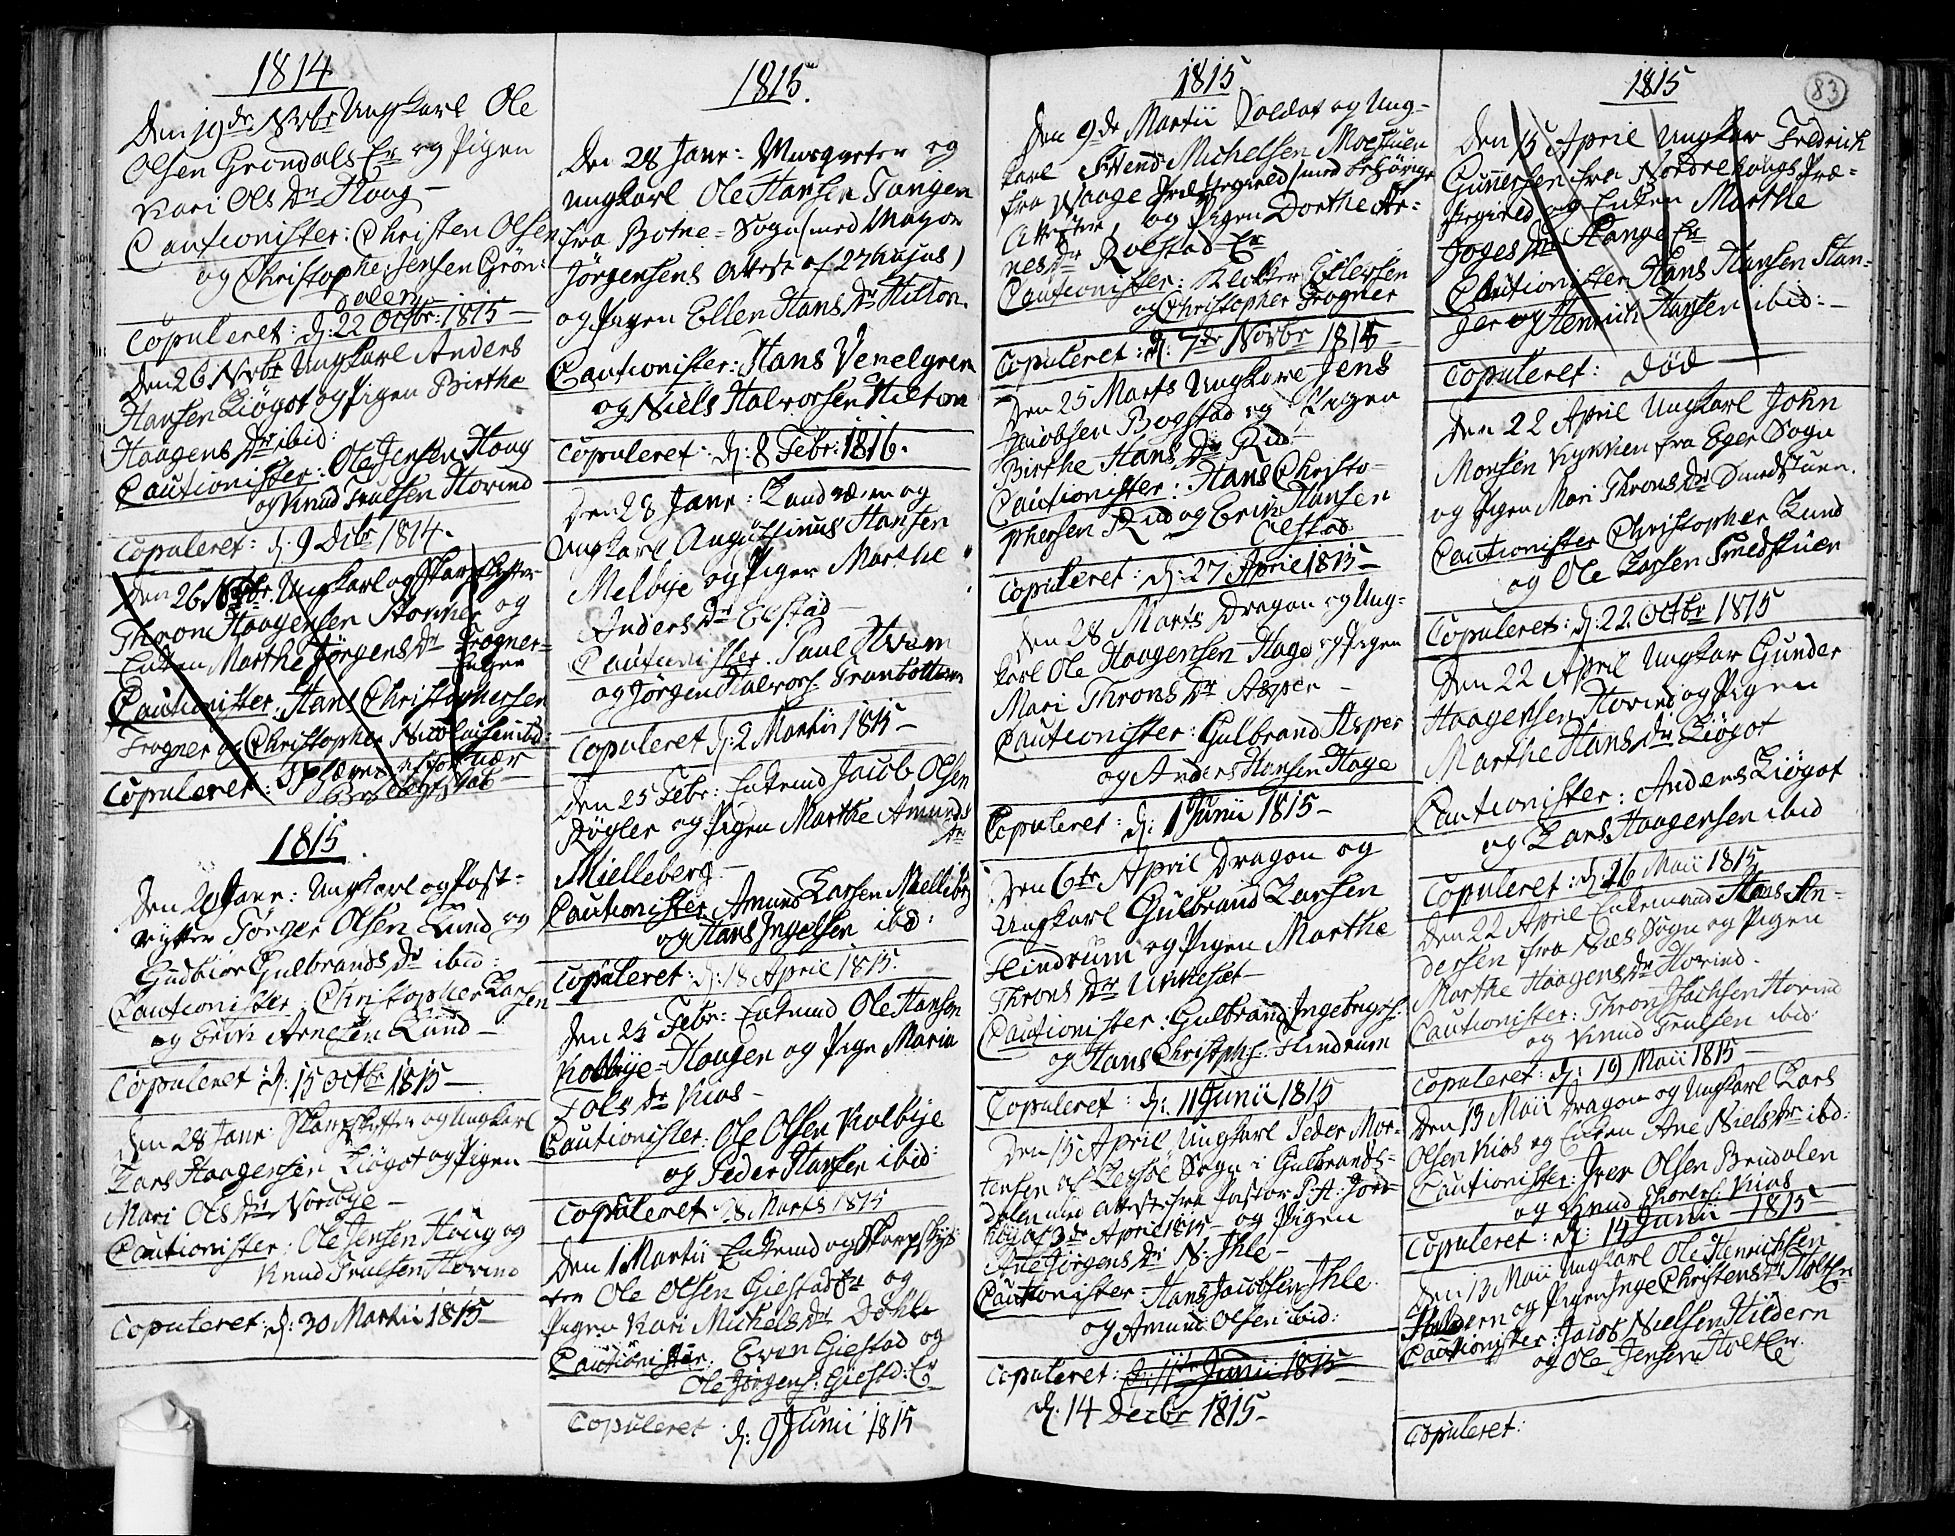 1814
Den 19de Nvbr Ungkarl Ole
Olsen Grøndals Er og Pigen
Kari Ols Dr Haag —
Cautionister: Christen Olsen
og Christophe Jensen Grøn:
dalen
Copuleret: d: 22 Octbr: 1815 —
Den 26 Nvbr Ungkarl Anders
Hansen Kiøgot og Pigen Birthe
Haagens Dr ibid:
Cautionister: Ole Jensen Haag
og Knud Trulsen Hovind
Copuleret: d: 9 Dcbr 1814.
Den 26 Nvbr. Ungkarl og Skarpskytter
Throon Haagensen og
Enken Marthe Jørgens Dr Frogner-
Eagen
Cautionister: Hans Christophersen
Frogner og Christopher Nicolaisen ibid:
Copuleret:
1815
Den 20 Janr: Ungkarl og Post-
rytter Tørger Olsen Lund og
Gudbior Gulbrands Dr ibid:
Cautionister: Christopher Larsen
og Erik Arnesen Lund —
Copuleret: d: 15 Octbr 1815 —
Den 28 Janr: Skarpskytter og Ungkarl
Lars Haagensen Kiøgot og Pigen
Mari Ols Dr Nordbye —
Cautionister: Ole Jensen Haug og
Knud Trulsen Hovind
Copuleret: d: 30 Martii 1815 —
1815.
Den 28 Janr: Musqueter og
Ungkarl Ole Hansen Tangen
fra Botne-Sogn (med Major
Jørgensens Attest af 27 hujus)
og Pigen Ellen Hans Dr Hilton
Cautionister: Hans Venelgren
og Niels Halvorsen Hilton
Copuleret: d: 8 Febr: 1816.
Den 28 Janr: Landværn og
Ungkarl Augustinus Hansen
Melbye og Pigen Marthe
Anders Dr Elstad —
Cautionister: Paul Hvam
og Jørgen Halvors: Tranbotten
Copuleret d: 2 Martii 1815 —
Den 25 Febr: Enkemd Jacob Olsen
Røgler og Pigen Marthe Amunds
Dr
Mielleberg —
Cautionister: Amund Larsen Mielleberg
og Hans Ingelsen ibid:
Copuleret: d: 18 April 1815.
Den 25 Febr: Enkemd Ole Hansen
Kolbye-Haagen og Pige Maria
Ols Dr Kios —
Cautionister: Ole Olsen Kolbye
og Peder Hansen ibid:
Copuleret 28 Marts 1815
Den 1 Martii Enkemd og Skarpskyt-
ter Ole Olsen Giestad Er og
Pigen Kari Michels Dr Døhle
Cautionister: Even Giestad og
Ole Jørgens: Giestd: Er
Copuleret d: 9 Junii 1815
1815
Den 9de Martii Soldat og Ung-
karl Svend Michelsen Moestuen
fra Waage Præstegield (med behørige
Attester, og Pigen Dorthe Ar-
nes Dr Rolstad Er
Cautionister: Klokker Ellersen
og Christopher Frogner
Copuleret: d: 7de Novbr 1815 —
Den 25 Marts Ungkarl Jens
Jacobsen Bogstad og Pigen
Birthe Hans Dr Riid —
Cautionister: Hans Christo-
phersen Riid og Erik Hansen
Elstad:
Copuleret: d: 27 April 1815 —
Den 28 Marts Dragon og Ung-
karl Ole Haagensen Hage og Pigen
Mari Throns Dr Asper —
Cautionister: Gulbrand Asper
og Anders Hansen Hage
Copuleret: d: 1 Junii 1815 —
Den 6te April Dragon og
Ungkarl Gulbrand Larsen
Flindrum og Pigen Marthe
Throns Dr Uvkesæt —
Cautionister: Gulbrand Ingebregts:
og Hans Christoph: Flindrum
Copuleret: d: 11 Junii 1815
Den 15 April Ungkarl Peder Mor-
tensen af Lessøe Sogn i Gulbrands-
dalen med Attest fra Pastor P. A:
af 3de April 1815 — og Pigen
Ane Jørgens Dr N: Ihle —
Cautionister Hans Jacobsen Ihle
og Amund Olsen ibid:
Copuleret: d: 11te Junii 1815
d: 14 Decbr 1815 —
83
1815
Den 15 April Ungkar Fredrich
Gunersen fra Nordrehougs Præ-
stegield og Enken Marthe
Joges Dr Stange Er
Cautionister Hans Hansen Stan-
ger og Henrich Hansen ibid: —
Copuleret: død —
Den 22 April Ungkarl John
Monsen Kykken fra Eger Sogn
og Pigen Mari Throns Dr Smedstuen.
Cautionister Christopher Lund
og Ole Larsen Smedstuen
Copuleret: d: 22 Octbr 1815
Den 22 April Ungkar Gunder
Haagensen Hovind og Pigen
Marthe Hans Dr Kiøgot
Cautionister: Anders Kiøgot
og Lars Haagensen ibid
Copuleret: d: 26 Maii 1815
Den 22 April Enkemand Hans An-
dersen fra Næs Sogn og Pigen
Marthe Haagens Dr Hovind.
Cautionister: Thron Isachsen Hovind
og Knud Trulsen ibid:
Copuleret: d: 19 Maii 1815 —
Den 13 Maii Dragon og Ungkarl Lars
Olsen Kios og Enken Ane Niels Dr ibid:
Cautionister: Iver Olsen Brudalen
og Knud Kios
Copuleret: d: 14 Junii 1815
Den 13 Maii Ungkarl Ole Henrichsen
Hildern og Pigen Inge Christens Dr Holt Er
Cautionister: Jacob Nielsen Hildern
og Ole Jensen Holt Er.
Copuleret: